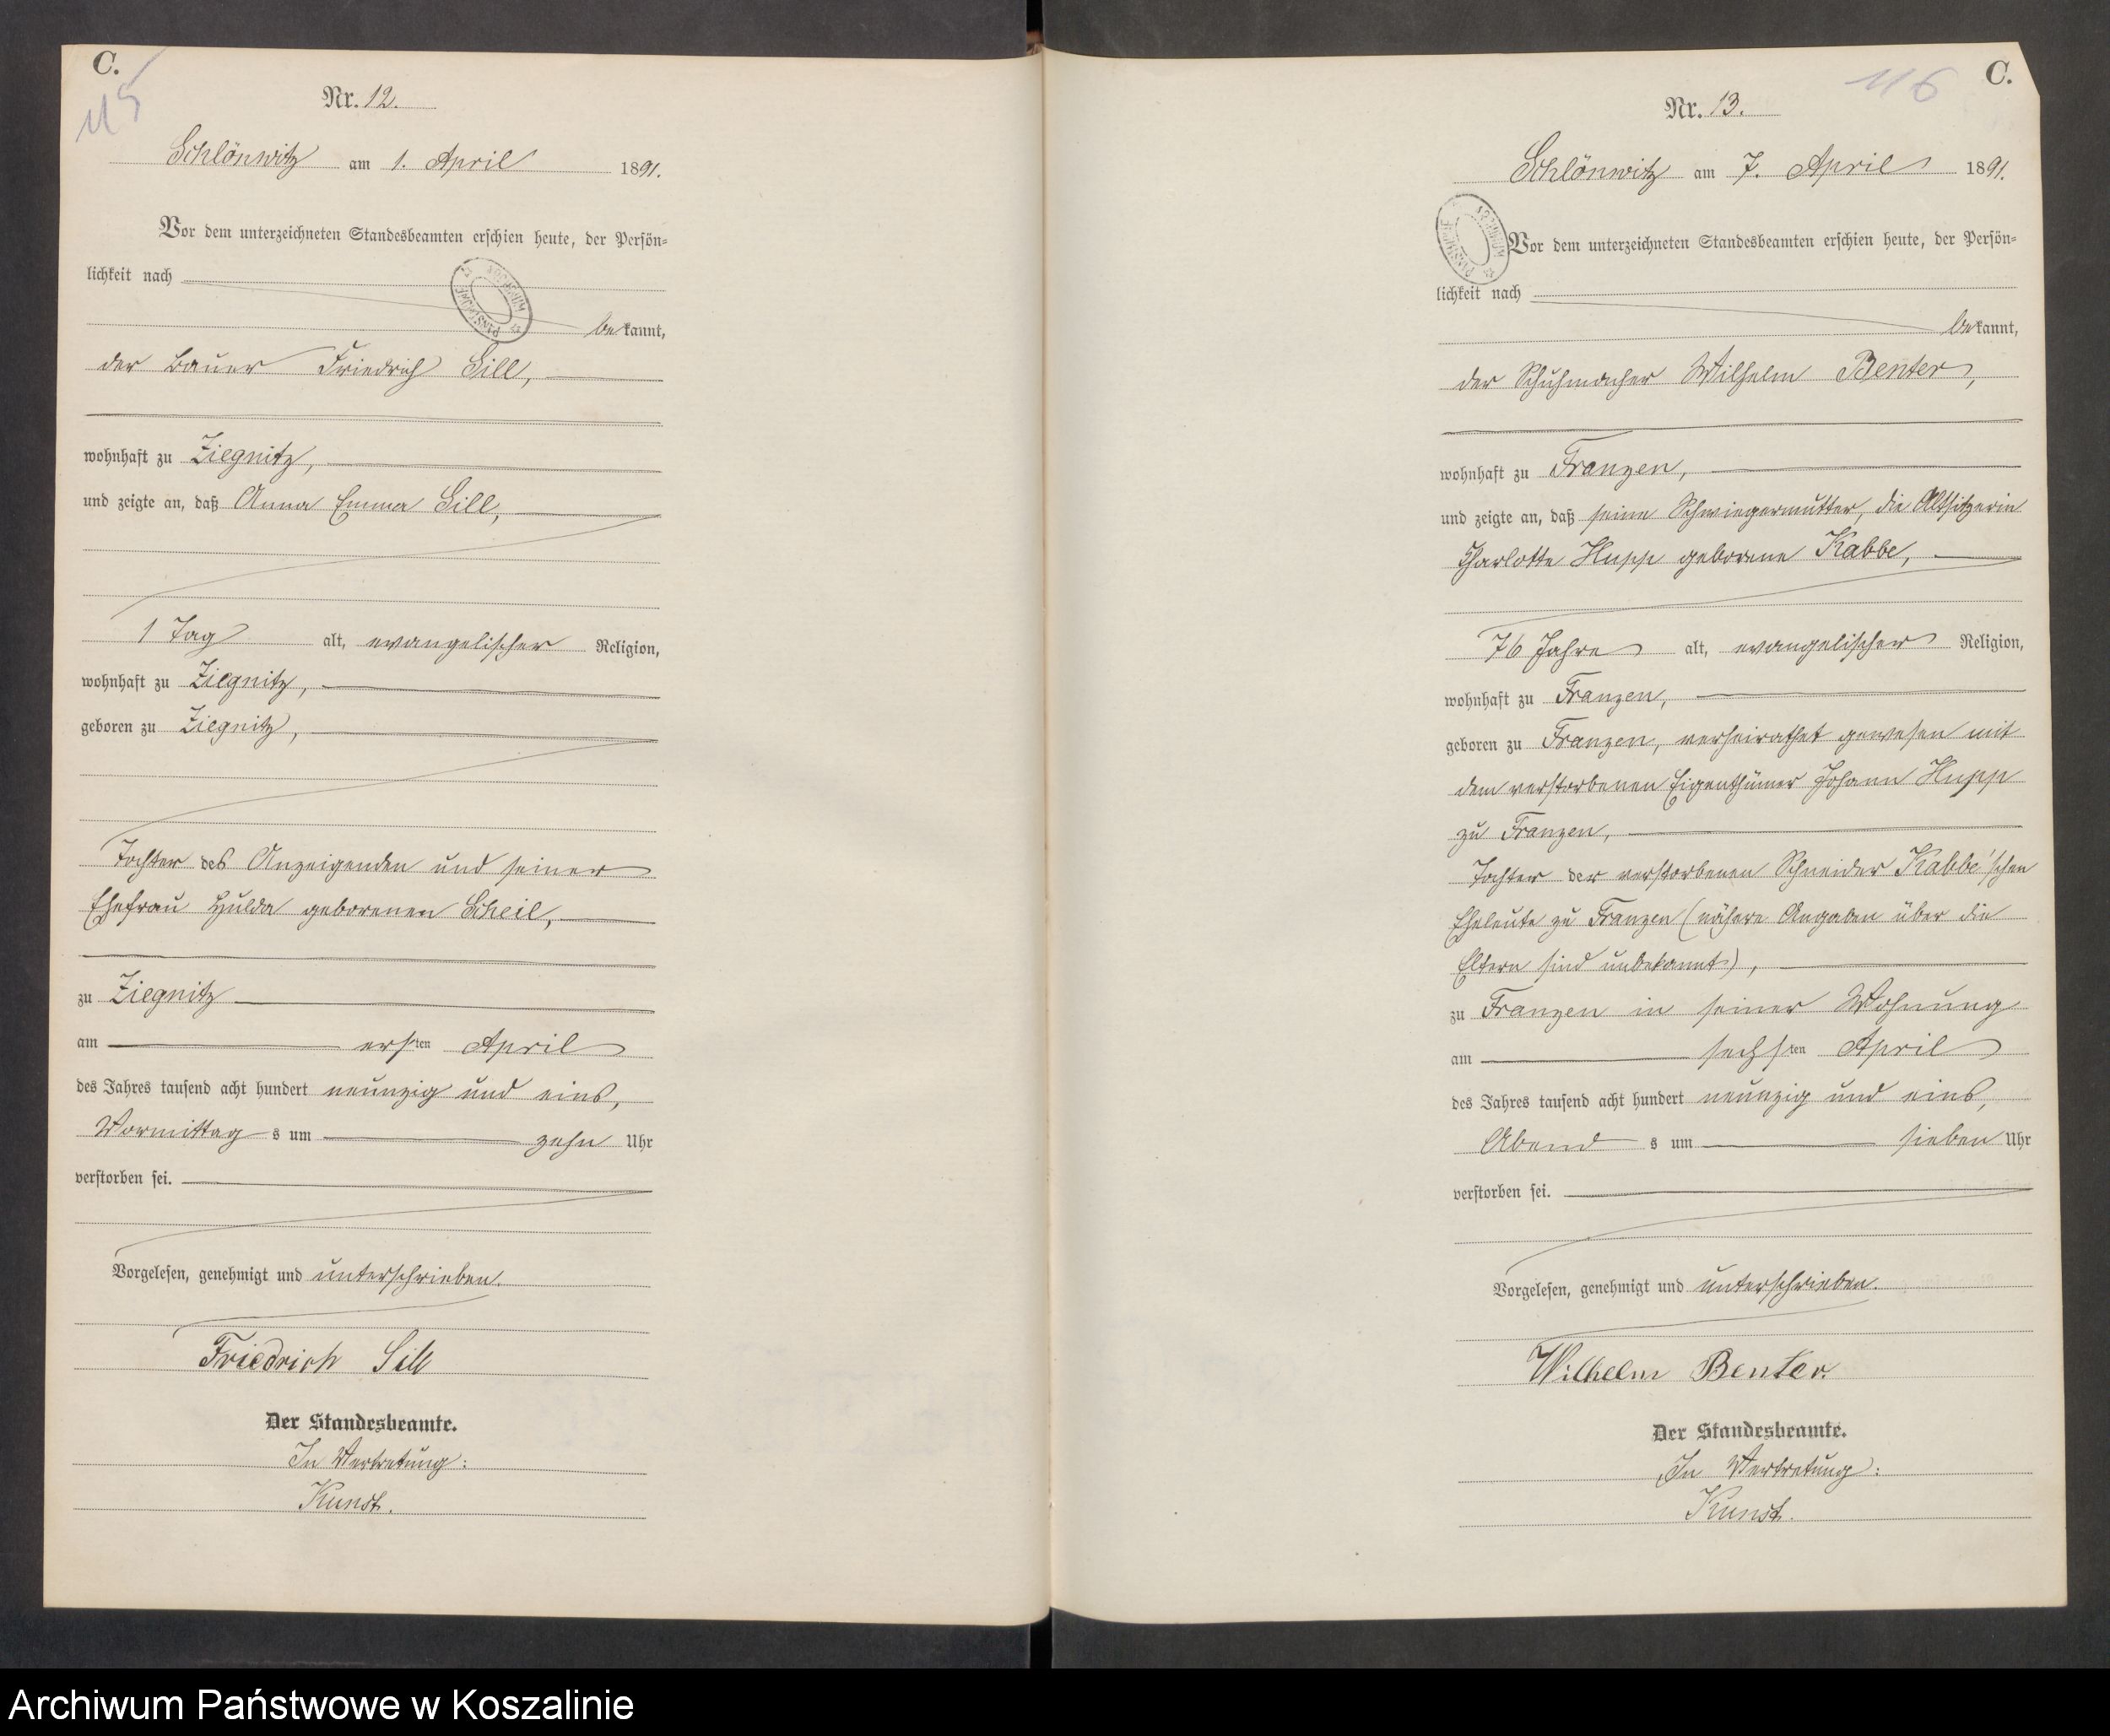 C.
115
Nr. 12.
Schlönwitz am 1. April 1891.
Vor dem unterzeichneten Standesbeamten erschien heute, der Persön-
lichkeit nach
bekannt,
der Bauer Friedrich Sill,
wohnhaft zu Ziegnitz,
und zeigte an, daß Anna Emma Sill,
1 Tag alt, evangelischer Religion,
wohnhaft zu Ziegnitz,
geboren zu Ziegnitz,
Tochter des Anzeigenden und seiner
Ehefrau Hulda geborenen Scheil,
zu Ziegnitz
am ersten April
des Jahres tausend acht hundert neunzig und eins,
Vormittags um zehn Uhr
verstorben sei.
Vorgelesen, genehmigt und unterschrieben.
Friedrich Sill
Der Standesbeamte.
In Vertretung:
Kunst.
116
C.
Nr. 13.
Schlönwitz am 7. April 1891.
Vor dem unterzeichneten Standesbeamten erschien heute, der Persön-
lichkeit nach
bekannt,
der Schuhmacher Wilhelm Benter,
wohnhaft zu Franzen,
und zeigte an, daß seine Schwiegermutter, die Altsitzerin
Charlotte Hupp geborene Kabbe,
76 Jahre alt, evangelischer Religion,
wohnhaft zu Franzen,
geboren zu Franzen, verheirathet gewesen mit
dem verstorbenen Eigenthümer Johann Hupp
zu Franzen,
Tochter der verstorbenen Schneider Kabbe'schen
Eheleute zu Franzen (nähere Angaben über die
Eltern sind unbekannt),
zu Franzen in seiner Wohnung
am sechsten April
des Jahres tausend acht hundert neunzig und eins,
Abends um sieben Uhr
verstorben sei.
Vorgelesen, genehmigt und unterschrieben.
Wilhelm Benter.
Der Standesbeamte.
In Vertretung:
Kunst.
Archiwum Państwowe w Koszalinie